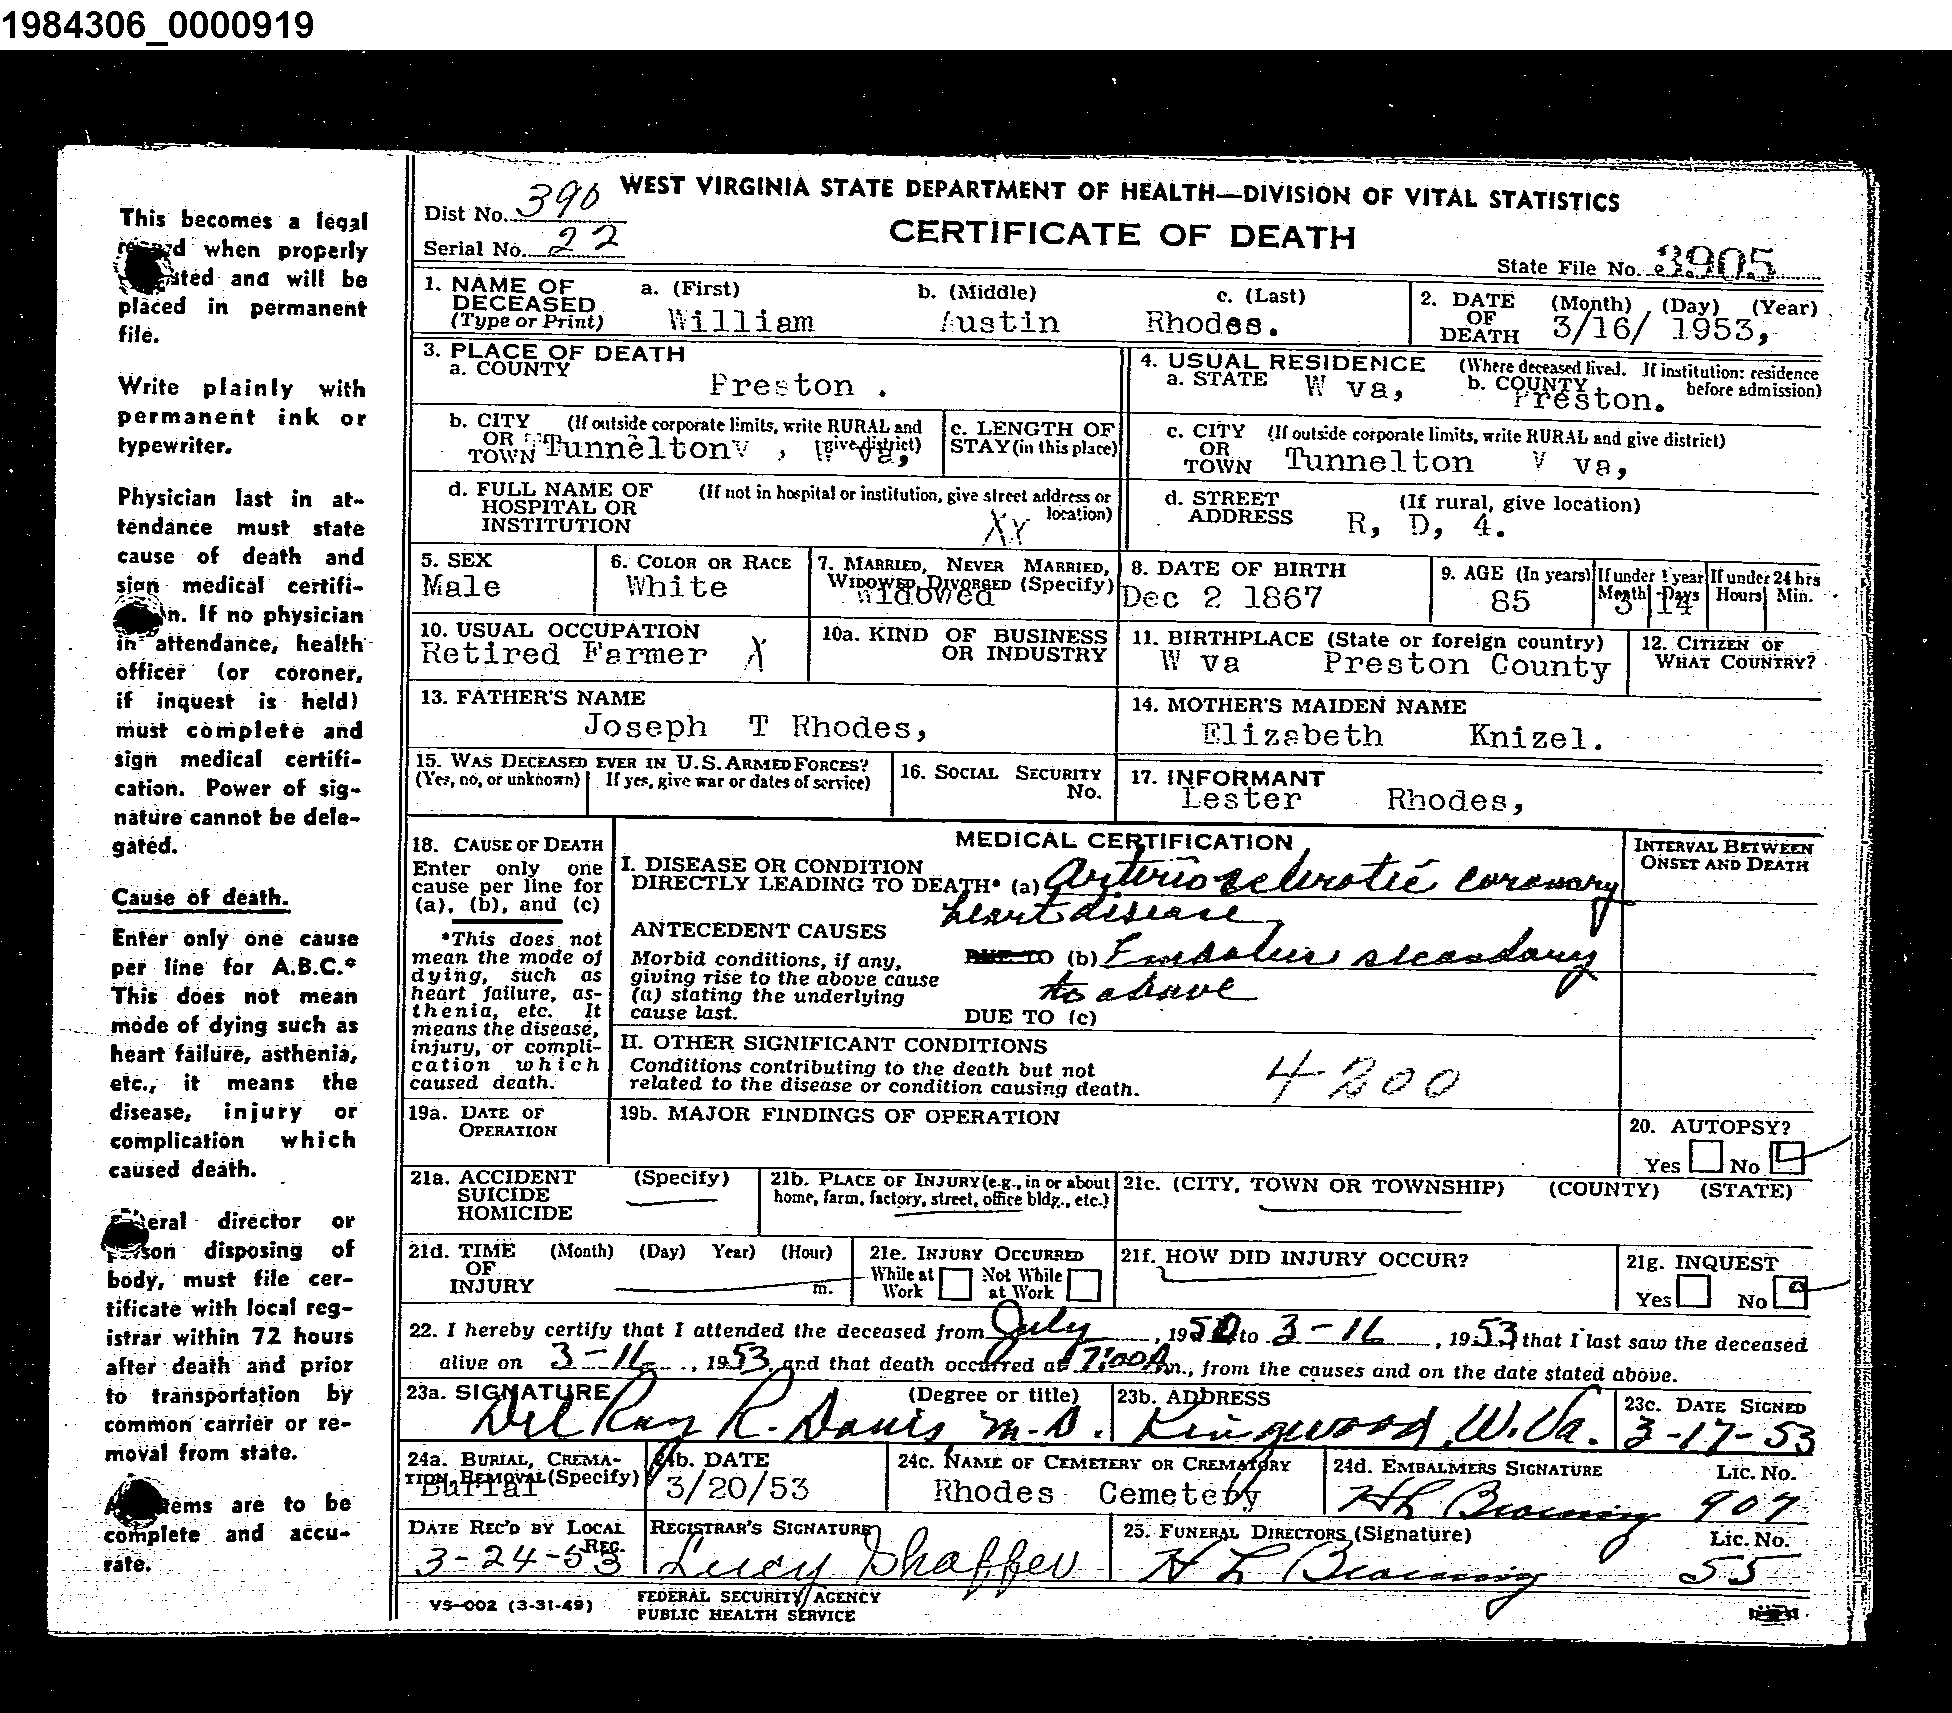 1984306_0000919
This becomes a legal
when properly
and will be
placed in permanent
file.
Write plainly with
permanent ink or
typewriter.
Physician last in at-
tendance must state
cause of death and
sign medical certifi-
If no physician
in attendance, health
officer (or coroner,
if inquest is held)
must complete and
sign medical certifi-
cation. Power of sig-
nature cannot be dele-
gated.
Cause of death.
Enter only one cause
per line for A.B.C.*
This does not mean
mode of dying such as
heart failure, asthenia,
etc., it means the
disease, injury or
complication which
caused death.
director or
disposing of
body, must file cer-
tificate with local reg-
istrar within 72 hours
after death and prior
to transportation by
common carrier or re-
moval from state.
are to be
complete and accu-
rate.
Dist No. 390 WEST VIRGINIA STATE DEPARTMENT OF HEALTH—DIVISION OF VITAL STATISTICS
Serial No. 22 CERTIFICATE OF DEATH
State File No. 3905
1. NAME OF DECEASED (Type or Print) a. (First) b. (Middle) c. (Last)
William Austin Rhodes.
2. DATE OF DEATH (Month) (Day) (Year)
3/16/ 1953,
3. PLACE OF DEATH
a. COUNTY
Preston .
4. USUAL RESIDENCE (Where deceased lived. If institution: residence before admission)
a. STATE W va, b. COUNTY Preston.
b. CITY OR TOWN (If outside corporate limits, write RURAL and give district)
Tunnelton , W va,
c. LENGTH OF STAY (in this place)
c. CITY OR TOWN (If outside corporate limits, write RURAL and give district)
Tunnelton W va,
d. FULL NAME OF HOSPITAL OR INSTITUTION (If not in hospital or institution, give street address or location)
XX
d. STREET ADDRESS (If rural, give location)
R, D, 4.
5. SEX
Male
6. COLOR OR RACE
White
7. MARRIED, NEVER MARRIED, WIDOWED, DIVORCED (Specify)
Widowed
8. DATE OF BIRTH
Dec 2 1867
9. AGE (In years) If under 1 year Month Days If under 24 hrs Hours Min.
85 3 14
10. USUAL OCCUPATION
Retired Farmer X
10a. KIND OF BUSINESS OR INDUSTRY
11. BIRTHPLACE (State or foreign country)
W va Preston County
12. CITIZEN OF WHAT COUNTRY?
13. FATHER'S NAME
Joseph T Rhodes,
14. MOTHER'S MAIDEN NAME
Elizabeth Knizel.
15. WAS DECEASED EVER IN U.S. ARMED FORCES?
(Yes, no, or unknown) If yes, give war or dates of service)
16. SOCIAL SECURITY No.
17. INFORMANT
Lester Rhodes,
18. CAUSE OF DEATH
Enter only one
cause per line for
(a), (b), and (c)
*This does not
mean the mode of
dying, such as
heart failure, as-
thenia, etc. It
means the disease,
injury, or compli-
cation which
caused death.
MEDICAL CERTIFICATION
INTERVAL BETWEEN ONSET AND DEATH
I. DISEASE OR CONDITION
DIRECTLY LEADING TO DEATH* (a) Arteriosclerotic coronary
heart disease
ANTECEDENT CAUSES
Morbid conditions, if any,
giving rise to the above cause
(a) stating the underlying
cause last.
DUE TO (b) Embolus secondary
to above
DUE TO (c)
II. OTHER SIGNIFICANT CONDITIONS
Conditions contributing to the death but not
related to the disease or condition causing death.
4200
19a. DATE OF OPERATION
19b. MAJOR FINDINGS OF OPERATION
20. AUTOPSY?
Yes No
21a. ACCIDENT SUICIDE HOMICIDE (Specify)
21b. PLACE OF INJURY (e.g., in or about
home, farm, factory, street, office bldg., etc.)
21c. (CITY, TOWN OR TOWNSHIP) (COUNTY) (STATE)
21d. TIME OF INJURY (Month) (Day) Year) (Hour) m.
21e. INJURY OCCURRED
While at Work Not While at Work
21f. HOW DID INJURY OCCUR?
21g. INQUEST
Yes No
22. I hereby certify that I attended the deceased from July, 1950 to 3-16, 1953 that I last saw the deceased
alive on 3-16, 1953, and that death occurred at 7:00A m., from the causes and on the date stated above.
23a. SIGNATURE (Degree or title)
Del Roy R. Davis M.D.
23b. ADDRESS
Kingwood, W. Va.
23c. DATE SIGNED
3-17-53
24a. BURIAL, CREMATION, REMOVAL (Specify)
Burial
24b. DATE
3/20/53
24c. NAME OF CEMETERY OR CREMATORY
Rhodes Cemetery
24d. EMBALMERS SIGNATURE Lic. No.
H L Browning 907
DATE REC'D BY LOCAL REG.
3-24-53
REGISTRAR'S SIGNATURE
Lucy Shaffer
25. FUNERAL DIRECTORS (Signature) Lic. No.
H L Browning 55
VS-002 (3-31-49)
FEDERAL SECURITY AGENCY
PUBLIC HEALTH SERVICE